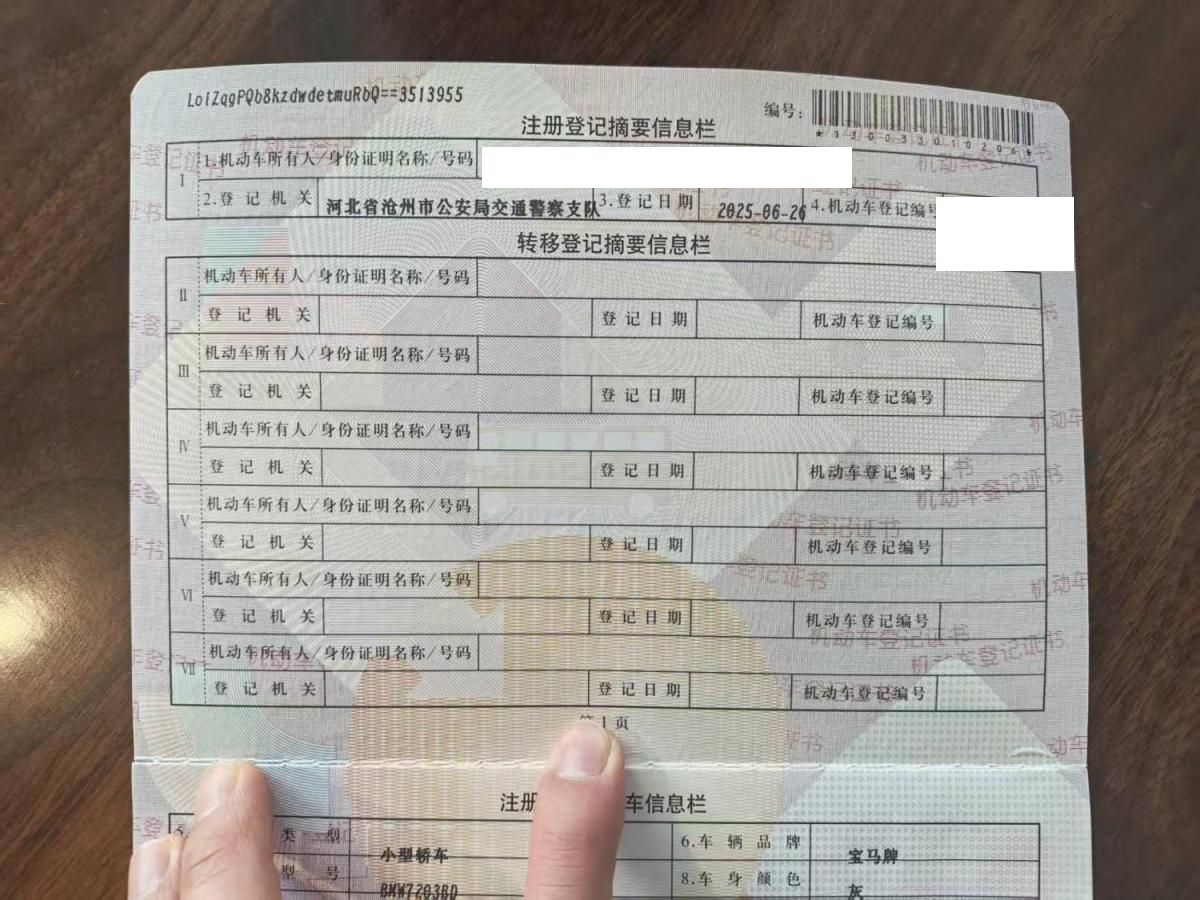 LoiZqgPQb8kzdwdetmuRbQ==3513955
编号:
*130033010206*
注册登记摘要信息栏
I
1.机动车所有人/身份证明名称/号码
2.登记机关 河北省沧州市公安局交通警察支队 3.登记日期 2025-06-26 4.机动车登记编号
转移登记摘要信息栏
II
机动车所有人/身份证明名称/号码
登记机关 登记日期 机动车登记编号
III
机动车所有人/身份证明名称/号码
登记机关 登记日期 机动车登记编号
IV
机动车所有人/身份证明名称/号码
登记机关 登记日期 机动车登记编号
V
机动车所有人/身份证明名称/号码
登记机关 登记日期 机动车登记编号
VI
机动车所有人/身份证明名称/号码
登记机关 登记日期 机动车登记编号
VII
机动车所有人/身份证明名称/号码
登记机关 登记日期 机动车登记编号
第1页
注册 车信息栏
5. 类型 小型轿车 6.车辆品牌 宝马牌
型号 BMW7203BD 8.车身颜色 灰